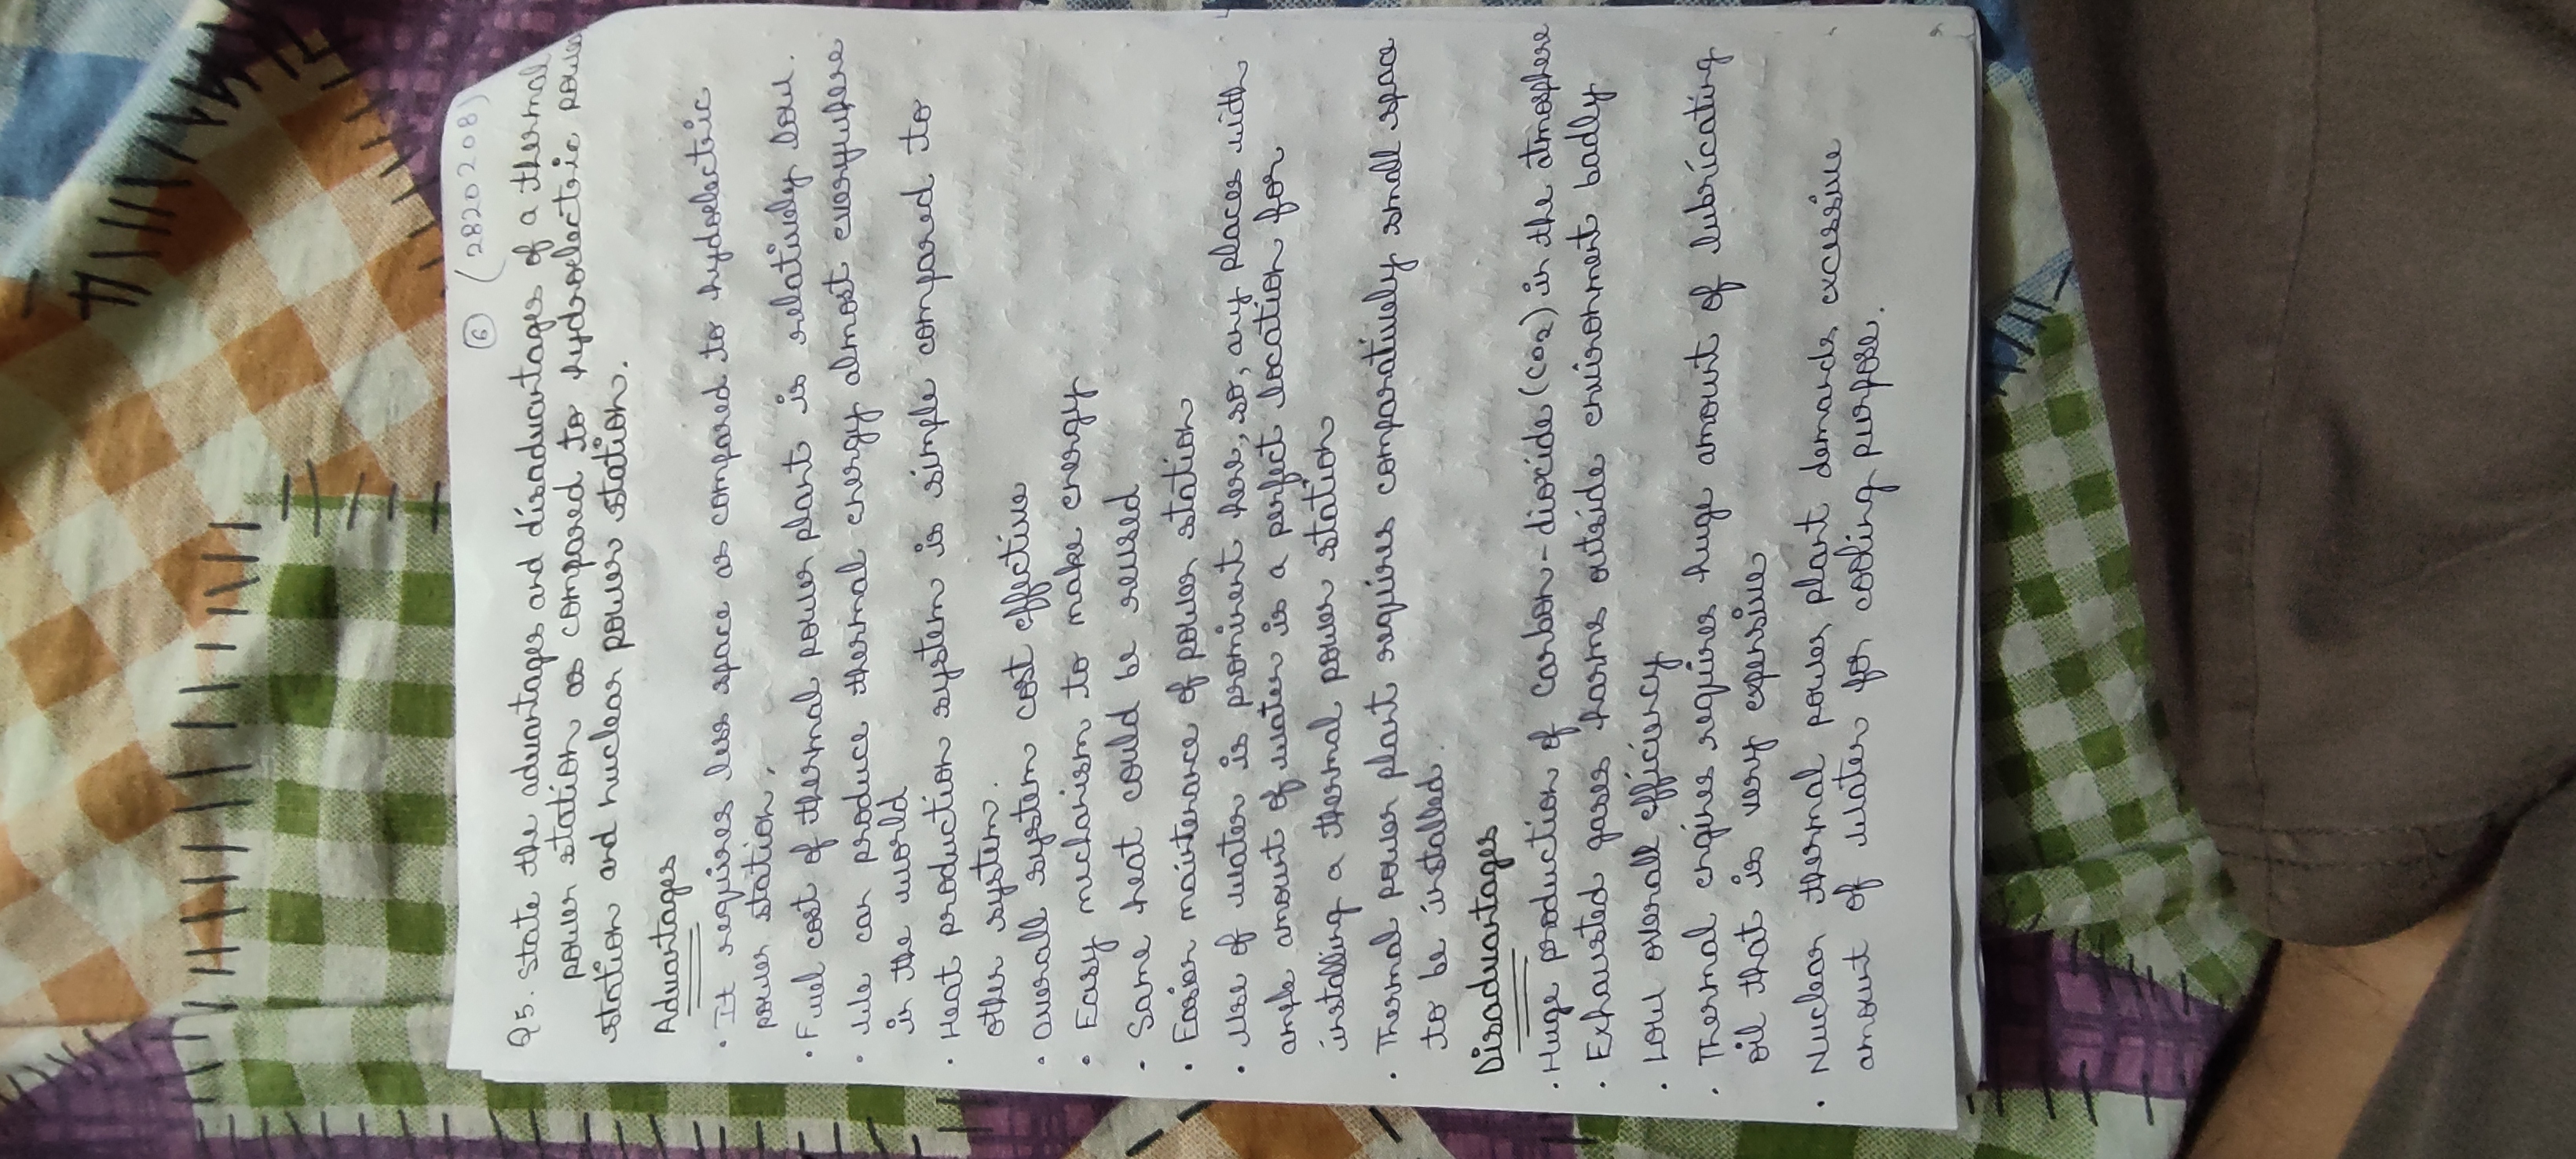 6 (2820208)
Q5. State the advantages and disadvantages of a thermal
power station as compared to hydroelectric power
station and nuclear power station.
Advantages
• It requires less space as compared to hydoelectric
power station.
• Fuel cost of thermal power plant is relatively low.
• We can produce thermal energy almost everywhere
in the world
• Heat production system is simple compared to
other system.
• Overall system cost effective
• Easy mechanism to make energy
• Same heat could be reused
• Easier maintenance of power station
• Use of water is prominent here, so, any places with
ample amount of water is a perfect location for
installing a thermal power station
• Thermal power plant requires comparatively small space
to be installed.
Disadvantages
• Huge production of carbon-dioxide (CO2) in the atmosphere
• Exhausted gases harms outside environment badly
• Low overall efficiency
• Thermal engines requires huge amount of lubricating
oil that is very expensive
• Nuclear thermal power plant demands excessive
amount of water for cooling purpose.